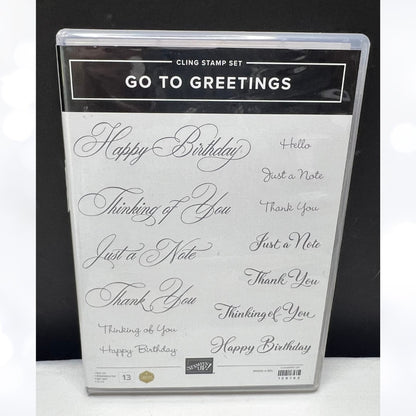 CLING STAMP SET
GO TO GREETINGS
Happy Birthday
Thinking of You
Just a Note
Thank You
Thinking of You
Happy Birthday
Hello
Just a Note
Thank You
Just a Note
Thank You
Thinking of You
Happy Birthday
13
STAMPIN' UP!